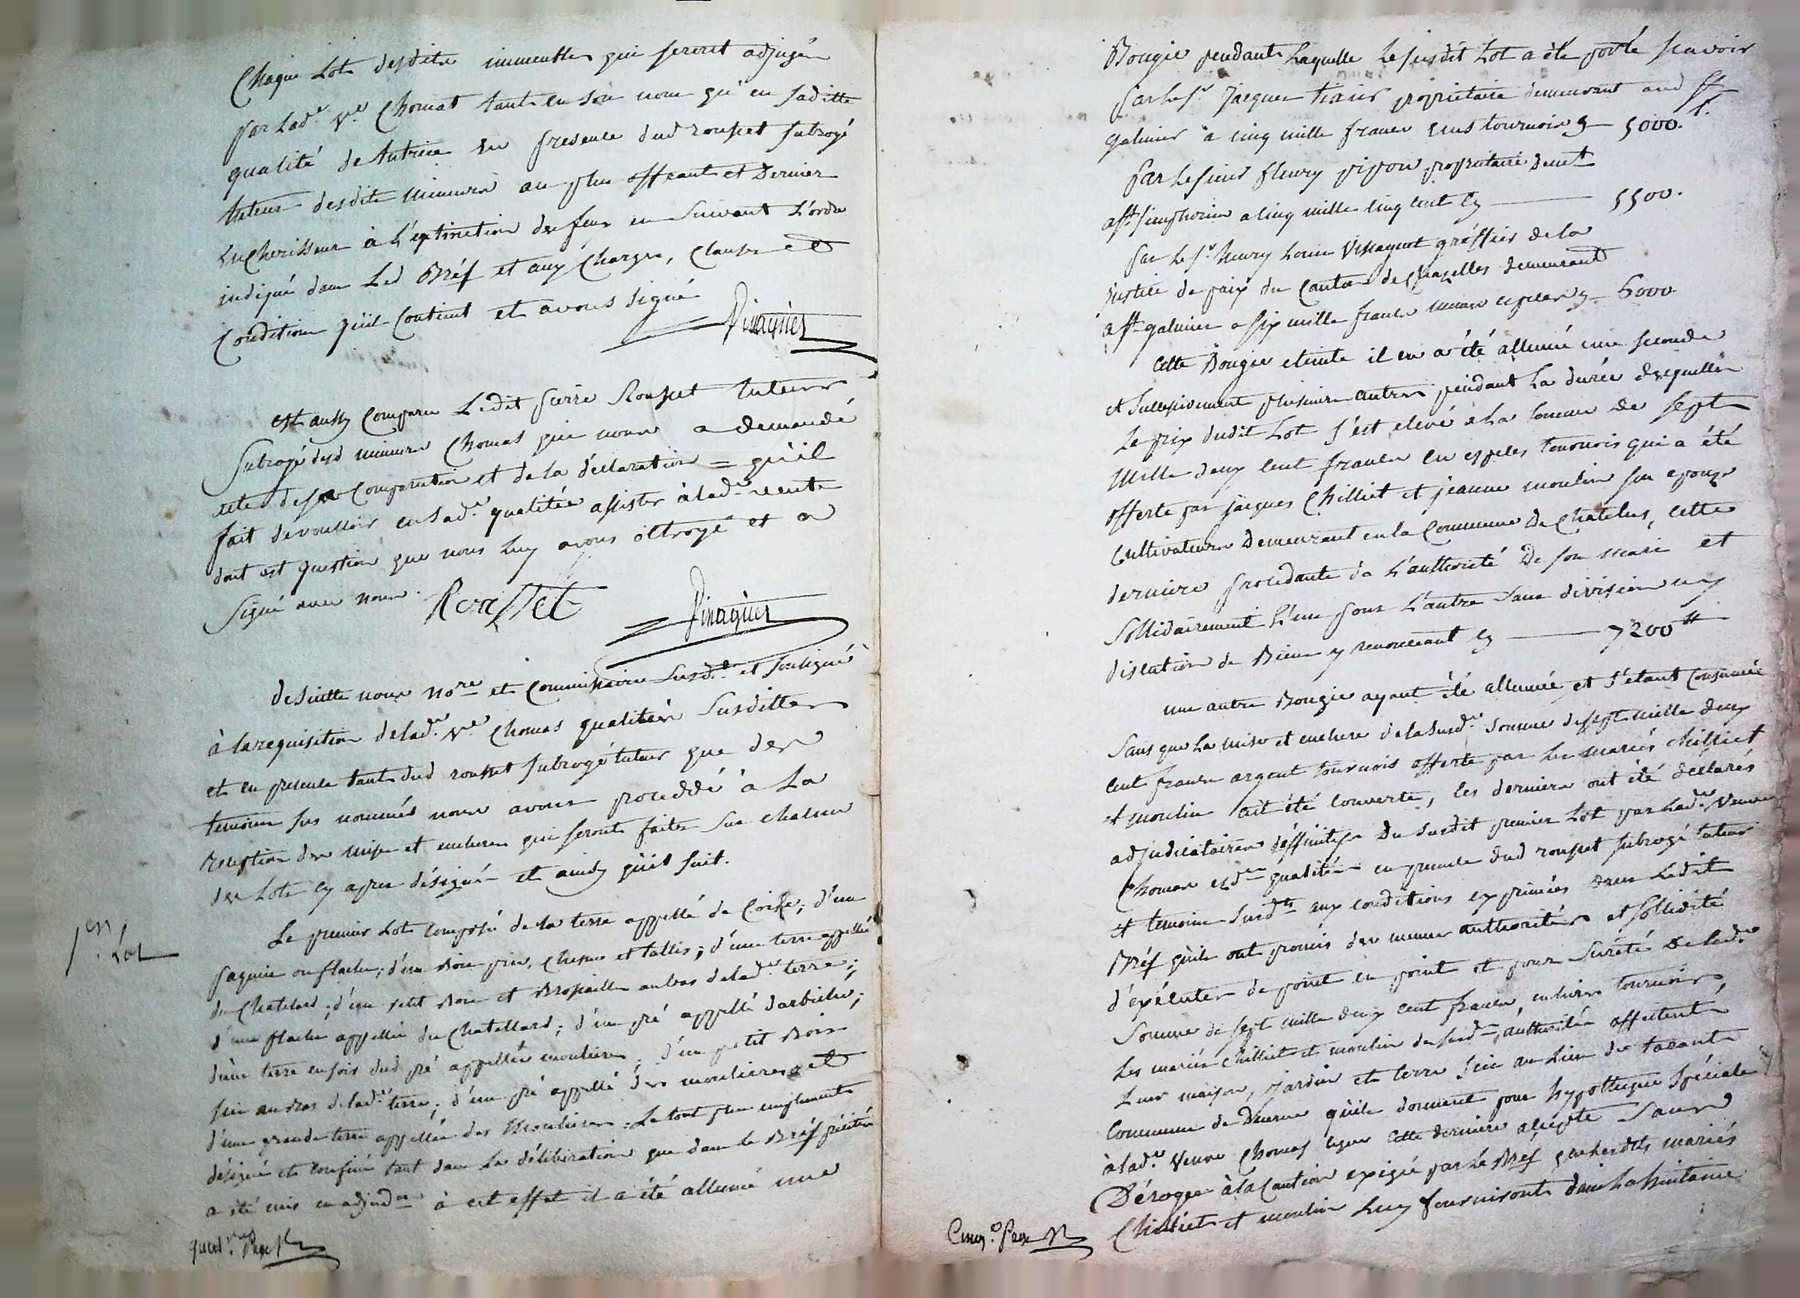 Chaque Lot desdits immeubles qui seront adjugés
par lad.e v.e Chomat tant en son nom qu'en saditte
qualité de tutrice en presence dud rousset subrogé
tuteur desdits mineurs au plus offrant et Dernier
Encherisseur à l'extinction des feux en suivant L'ordre
indiqué dans Led Bréf et aux Charges, Clauses et
Conditions qu'il Contient et avons signé
Pinaguet
est aussy Comparu Ledit pierre Rousset tuteur
Subrogé desd mineurs Chomas qui nous a demandé
acte de sa Comparution et de la déclaration qu'il
fait de vouloir en sad.e qualitée assister à lad.e vente
dont est question que nous luy avons octroyé et a
signé avec nous.
Rousset
Pinaguet
de suitte nous No.re et Commissaire Susd. et soussigné
à la requisition de lad.e v.e Chomas qualitées Susdittes
et en presence tant dud rousset subrogé tuteur que des
temoins sus nommés nous avons procédé à La
réception des mises et encheres qui seront faites sur chacun
des Lots cy apres désignés et ainsy qu'il suit.
1.er Lot
Le premier Lot composé de la terre appellé de Coise; d'une
paquier ou flache; d'un Bois pin, Chesne et tallis; d'une terre appellée
du Chatelard; d'un petit Bois et Brossailles au bas de lad.e terre;
d'une flache appellée du Chatellard; d'un pré appellé Darbiche;
d'une terre en soir dud pré appellée moulieres; d'un petit Bois
sis au bas de lad.e terre; d'un pré appellé des moulieres et
d'une grande terre appellée des Moulieres. Le tout plus amplement
désigné et confiné tant dans La délibération que dans le Bréf précité
a été mis en adjud.on à cet effet il a été allumé une
quat. Page
Bougie pendant Laquelle Le susdit Lot a été porté scavoir
par le s.r Jacques trair proprietaire demeurant aud St
galmier à cinq mille francs sous tournois cy 5000.
Par le sieur fleury pipon proprietaire demt
a St simphorien a cinq mille cinq cent cy 5500.
par le s.r henry Louis Pinaguet gréffier de la
justice de paix du Canton de Chazelles demeurant
à St galmier a six mille francs cy 6000
cette Bougie eteinte il en a été allumé une seconde
et successivement plusieurs autres pendant la durée desquelles
Le prix dudit Lot s'est elevé à la somme De sept
mille deux cent francs en especes tournois qui a été
offerte par jacques Chilliet et jeanne moulin son epouse
Cultivateurs Demeurant en la Commune de Chatelus, cette
derniere procedante de L'authorité De son mari et
Sollidairement L'un pour L'autre sans division ny
discution de Biens y renonceant cy 7200
une autre Bougie ayant été allumée et s'étant Consumée
sans que La mise et enchere de la susd.e Somme de sept mille deux
cent francs argent tournois offerte par les mariés chilliet
et moulin ait été couverte, les derniers ont été déclarés
adjudicataires déffinitifs du susdit premier Lot par Lad.e Veuve
Chomas esd. qualités en presence dud rousset subrogé tuteur
et temoins susd.ts aux conditions exprimées dans Ledit
Bréf qu'ils ont promis des memes authorités et sollidité
d'exécuter de point en point et pour sureté De lad.e
Somme de sept mille deux cent francs,
Les mariés Chilliet et moulin de susd. authorités affectent
Leur maison, jardin et terre sein au Lieu de
Commune de qu'ils donnent pour hypotheque spéciale
à lad.e veuve Chomas que cette derniere accepte Sans
Déroger à la Caution exigée par Le Bréf que lesdits mariés
Chilliet et moulin Luy fourniront dans la huitaine
Cinq.e Page